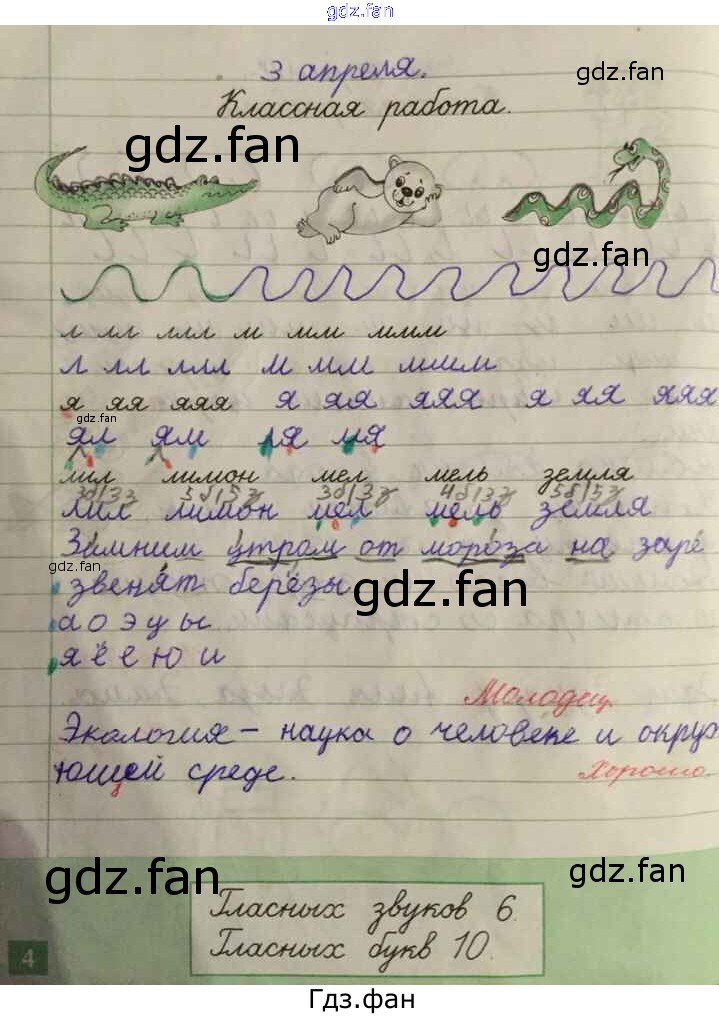 gdz.fan
3 апреля.
gdz.fan
Классная работа.
gdz.fan
gdz.fan
л лл ллл м мм ммм
л лл ллл м мм ммм
я яя яяя я яя яяя я яя яяя
gdz.fan
ял ям ля мя
лил лимон мел мель земля
3б|3з 5б|5з 3б|3з 4б|3з 5б|5з
лил лимон мел мель земля
Зимним утром от мороза на заре
gdz.fan
звенят берёзы
gdz.fan
а о э у ы
я ё е ю и
Молодец
Экология – наука о человеке и окру
ющей среде.
Хорошо.
gdz.fan
gdz.fan
Гласных звуков 6.
Гласных букв 10.
4
Гдз.фан